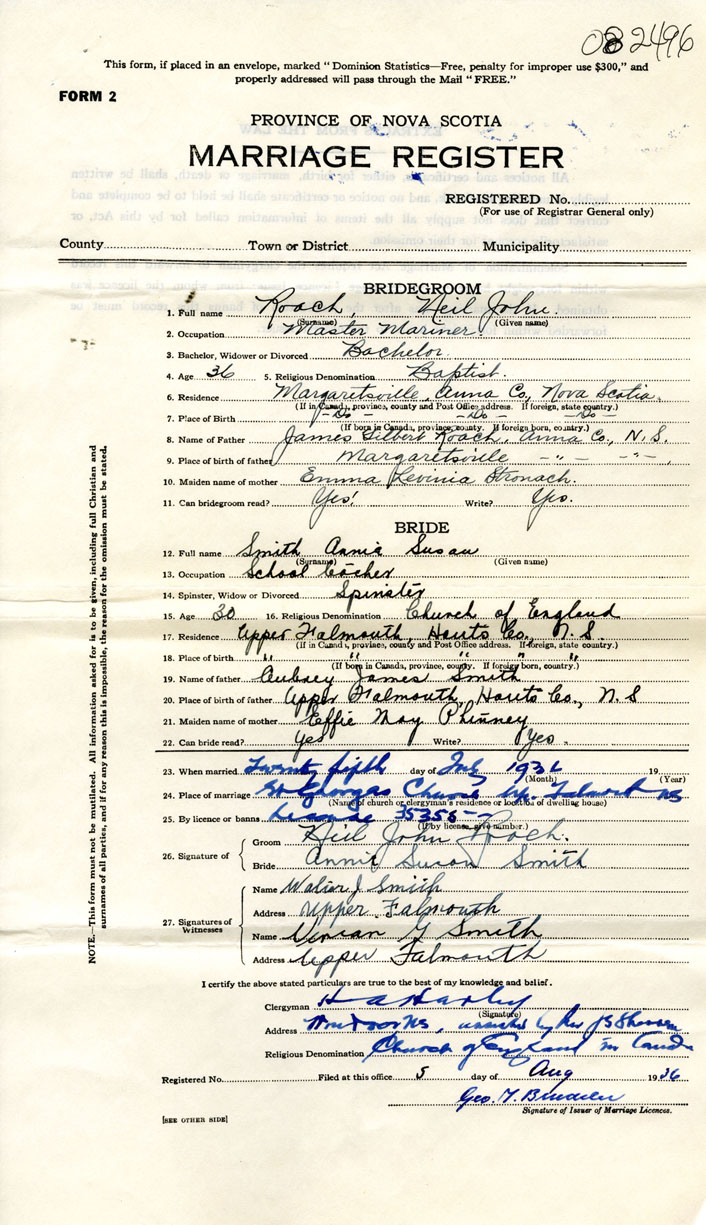 082496
This form, if placed in an envelope, marked "Dominion Statistics—Free, penalty for improper use $300," and
properly addressed will pass through the Mail "FREE."
FORM 2
PROVINCE OF NOVA SCOTIA
MARRIAGE REGISTER
REGISTERED No.
(For use of Registrar General only)
County Town or District Municipality
BRIDEGROOM
1. Full name Roach, Neil John.
(Surname) (Given name)
2. Occupation Master Mariner.
3. Bachelor, Widower or Divorced Bachelor
4. Age 36 5. Religious Denomination Baptist.
6. Residence Margaretsville, Anna Co, Nova Scotia.
(If in Canada, province, county and Post Office address. If foreign, state country.)
7. Place of Birth -Do- -Do- -Do-
(If born in Canada, province, county. If foreign born, country.)
8. Name of Father James Gilbert Roach, Anna Co, N.S.
9. Place of birth of father Margaretsville -"- -"-,
10. Maiden name of mother Emma Levinia Stronach.
11. Can bridegroom read? Yes! Write? Yes.
BRIDE
12. Full name Smith Annie Susan
(Surname) (Given name)
13. Occupation School
14. Spinster, Widow or Divorced Spinster
15. Age 30 16. Religious Denomination Church of England
17. Residence Upper Falmouth, Hants Co., N.S.
(If in Canada, province, county and Post Office address. If foreign, state country.)
18. Place of birth " " " " "
(If born in Canada, province, county. If foreign born, country.)
19. Name of father Aubrey James Smith
20. Place of birth of father Upper Falmouth, Hants Co., N.S
21. Maiden name of mother Effie May Phinney
22. Can bride read? Yes Write? Yes.
23. When married Twenty fifth day of July 1936 19
(Month) (Year)
24. Place of marriage St Georges Church Up. Falmouth NS
(Name of church or clergyman's residence or location of dwelling house)
25. By licence or banns License 35355
(If by license, give number.)
26. Signature of
Groom Neil John Roach.
Bride Annie Susan Smith
27. Signatures of Witnesses
Name Walter J Smith
Address Upper Falmouth
Name Vivian G Smith
Address Upper Falmouth
I certify the above stated particulars are true to the best of my knowledge and belief.
Clergyman H A Harley
(Signature)
Address Windsor NS, assisted by Rev
Religious Denomination Church of England in Canada
Registered No. Filed at this office 5 day of Aug 1936
Geo.
Signature of Issuer of Marriage Licences.
[SEE OTHER SIDE]
NOTE.—This form must not be mutilated. All information asked for is to be given, including full Christian and
surnames of all parties, and if for any reason this is impossible, the reason for the omission must be stated.